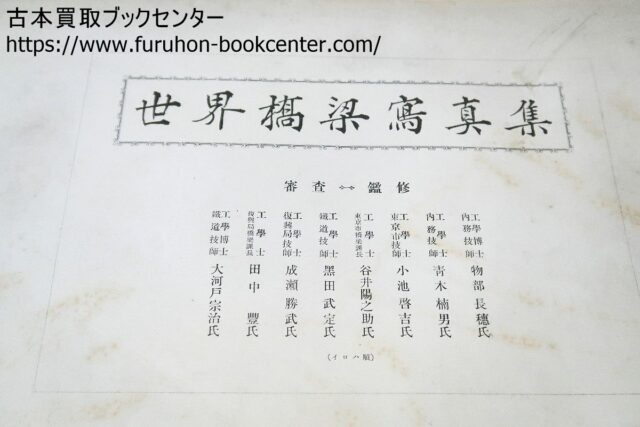 古本買取ブックセンター
https://www.furuhon-bookcenter.com/
世界橋梁寫真集
審査⇔鑑修
工學博士 內務技師 物部長穗氏
工學士 內務技師 青木楠男氏
工學士 東京市技師 小池啓吉氏
工學士 東京市橋梁課長 谷井陽之助氏
工學士 鐵道技師 黑田武定氏
工學士 復興局技師 成瀨勝武氏
工學士 復興局橋梁課長 田中豐氏
工學博士 鐵道技師 大河戶宗治氏
(イロハ順)